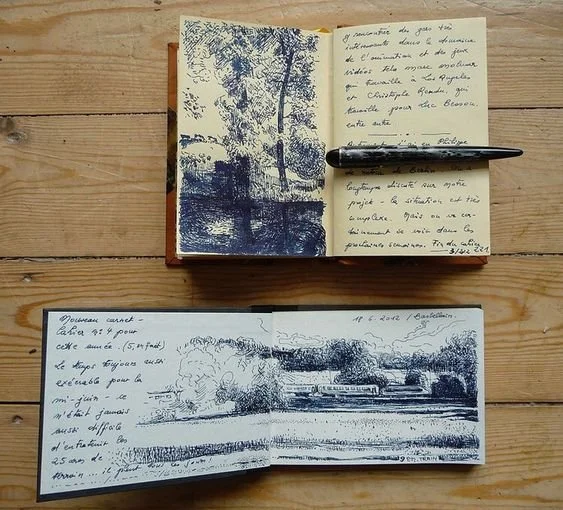 rencontrer des gens très
intéressants dans le domaine
de l'animation et des jeux
vidéos tels
qui travaille à Los Angeles
et Christophe qui
travaille pour Luc Besson.
entre autre.
Philippe
longtemps discuté sur notre
projet - la situation est très
complexe. Mais on va cer-
tainement se voir dans les
prochaines semaines. Fin du cahier
Nouveau carnet -
Cahier n° 4 pour
cette année. (5, en fait)
Le temps toujours aussi
exécrable pour la
mi-juin - ce
n'était jamais
aussi difficile
d'entretenir les
25 ares de
terrain ... il pleut tous les jours!
18.6.2012 /
EN TRAIN